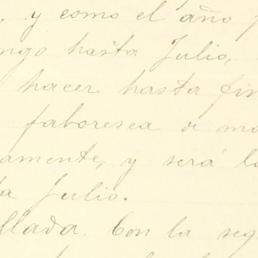 y como el año
ngo hasta Julio,
hacer hasta fin
faboresca
amente, y será
Julio.
llada. Con la seg